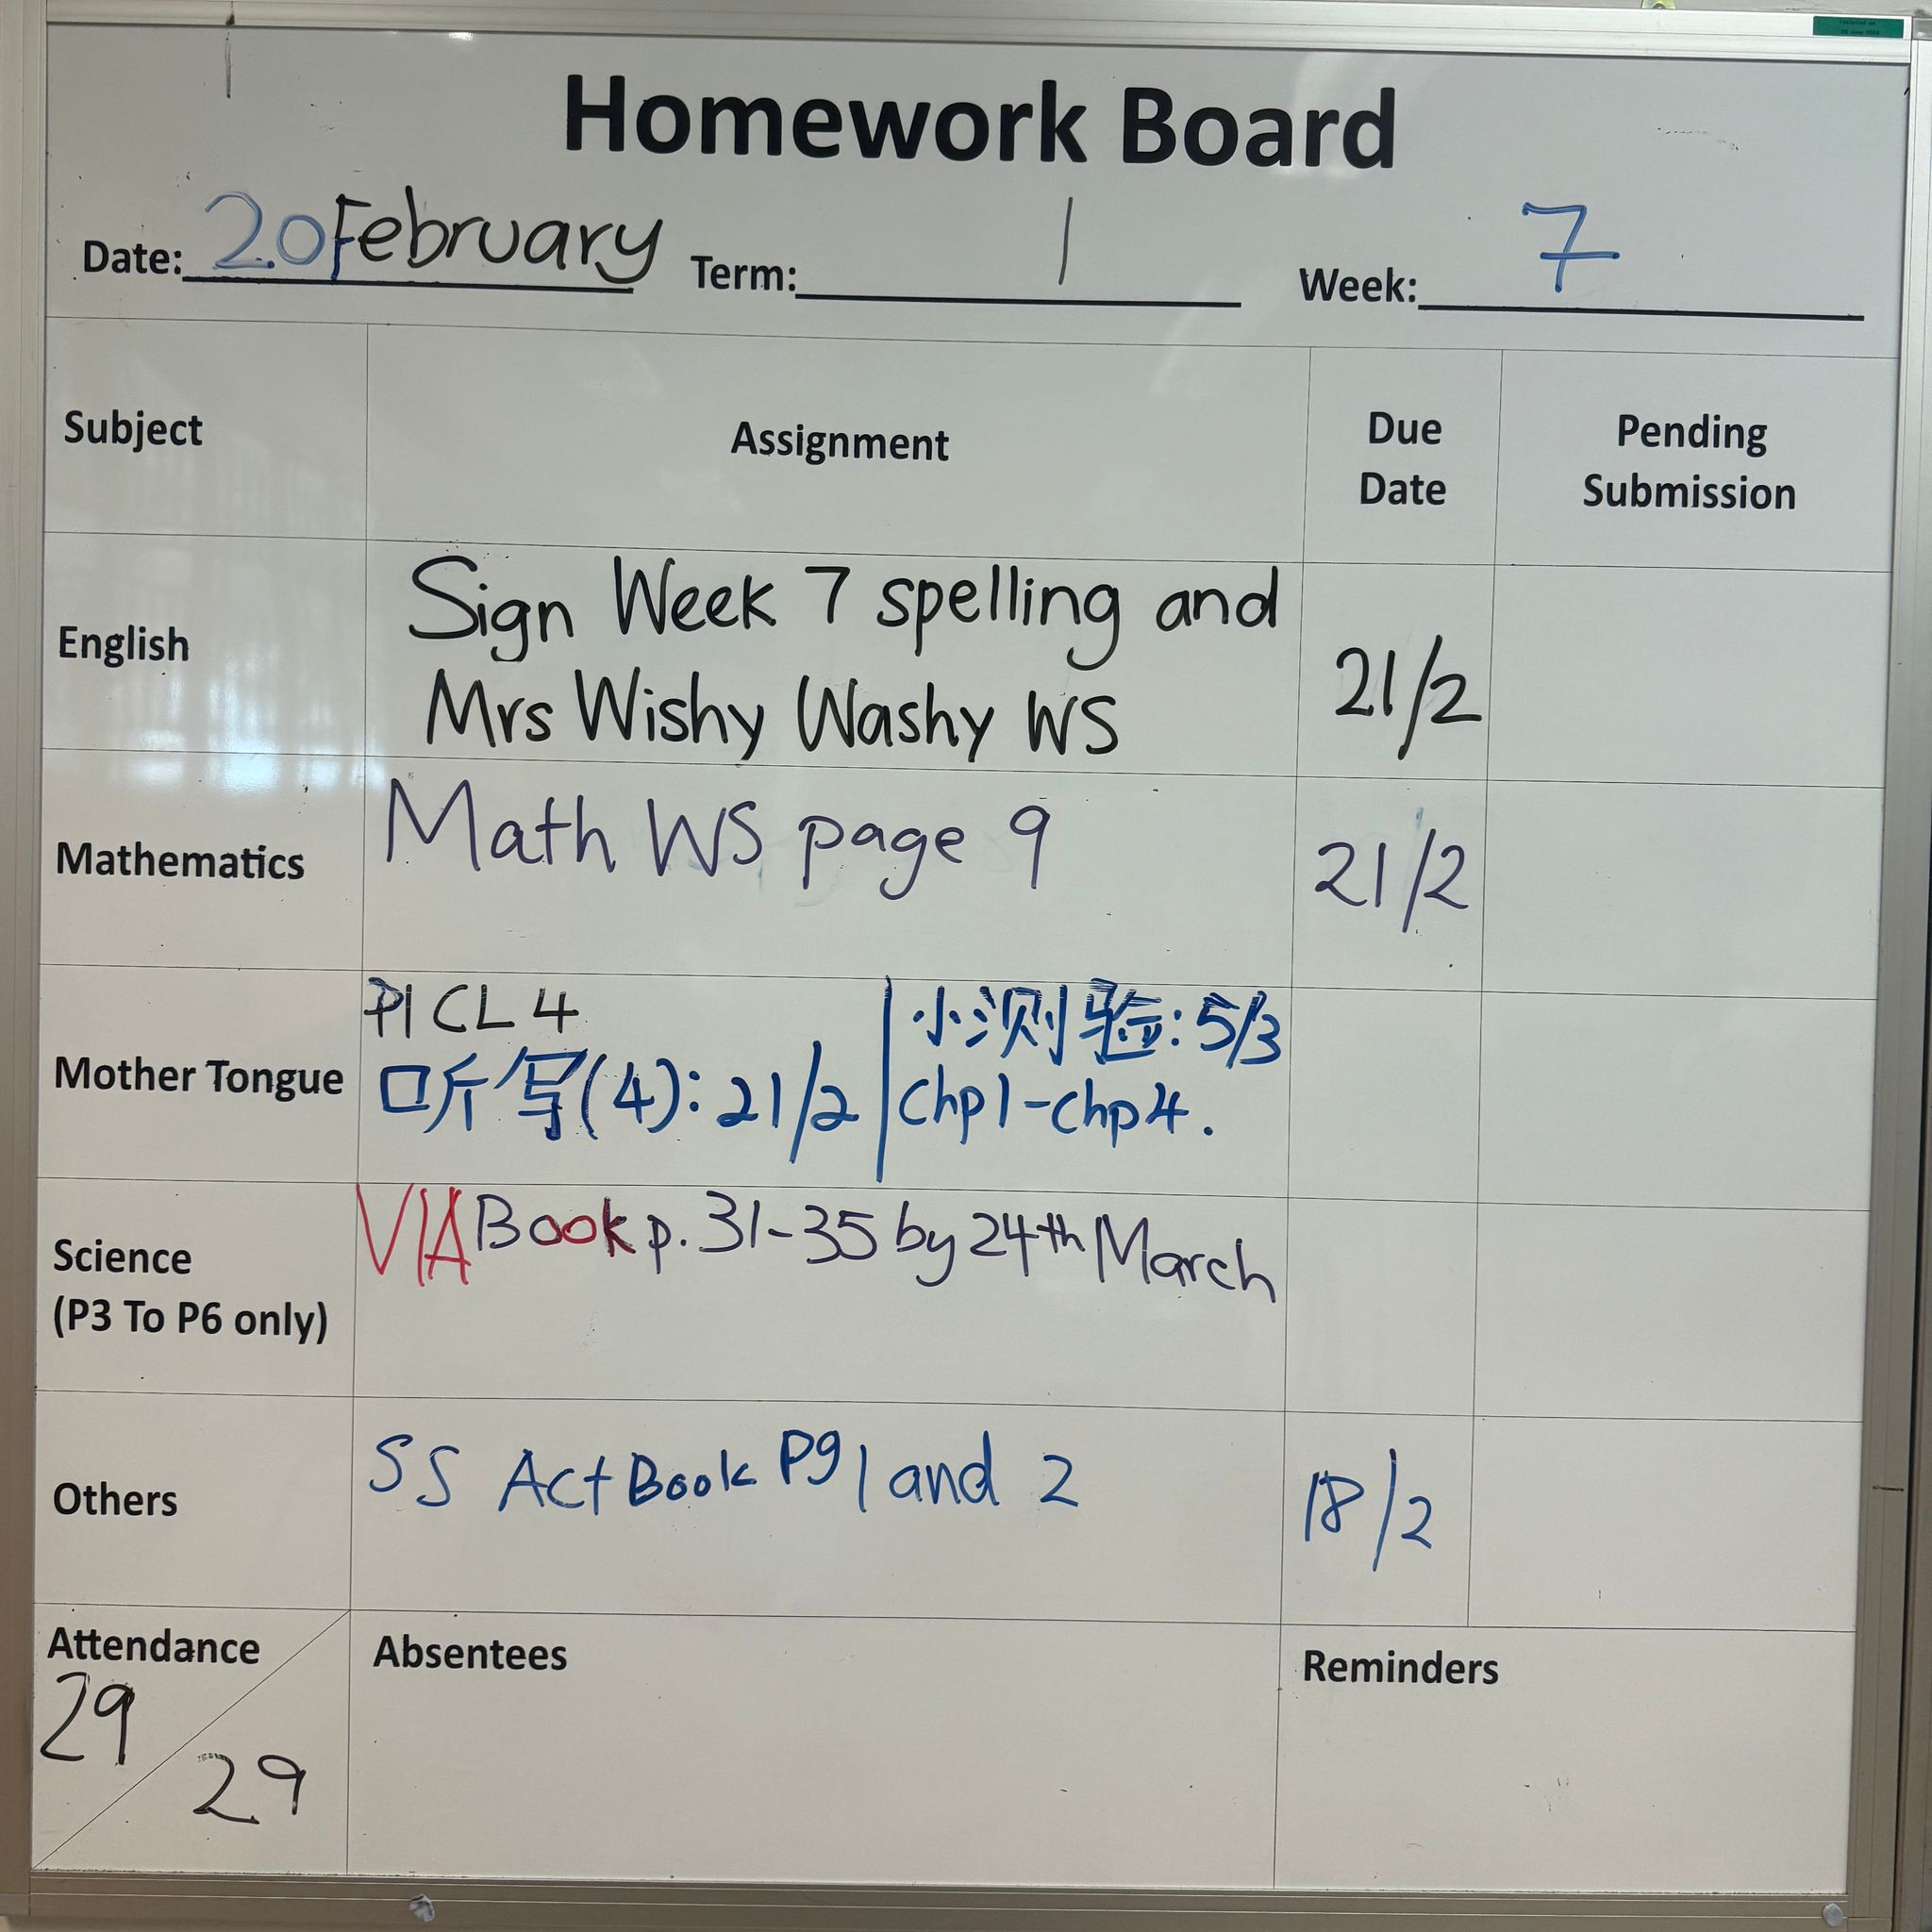 Homework Board
Date: 20 February Term: 1 Week: 7
Subject Assignment Due Date Pending Submission
English
Sign Week 7 spelling and
Mrs Wishy Washy WS
21/2
Mathematics
Math WS page 9
21/2
Mother Tongue
P1 CL 4
听写(4): 21/2
小测验: 5/3
Chp1-Chp4.
Science
(P3 To P6 only)
VIA Book p. 31-35 by 24th March
Others
SS Act Book Pg 1 and 2
18/2
Attendance
29
29
Absentees
Reminders